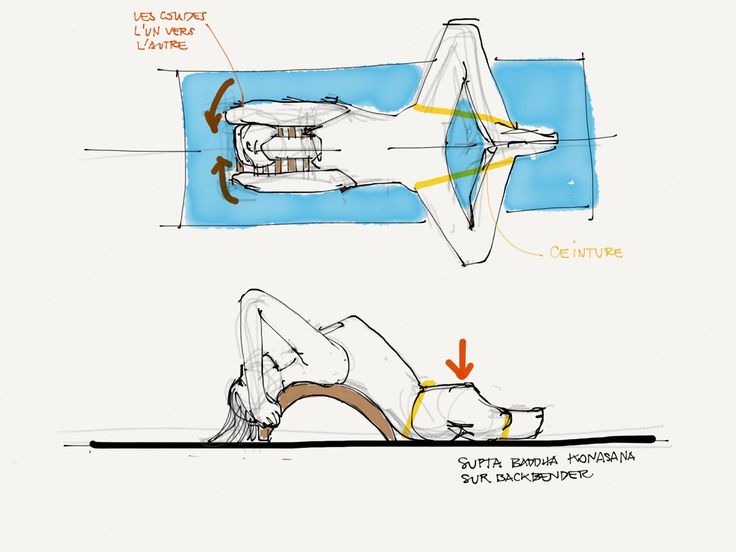 LES COUDES
L'UN VERS
L'AUTRE
CEINTURE
SUPTA BADDHA KONASANA
SUR BACKBENDER